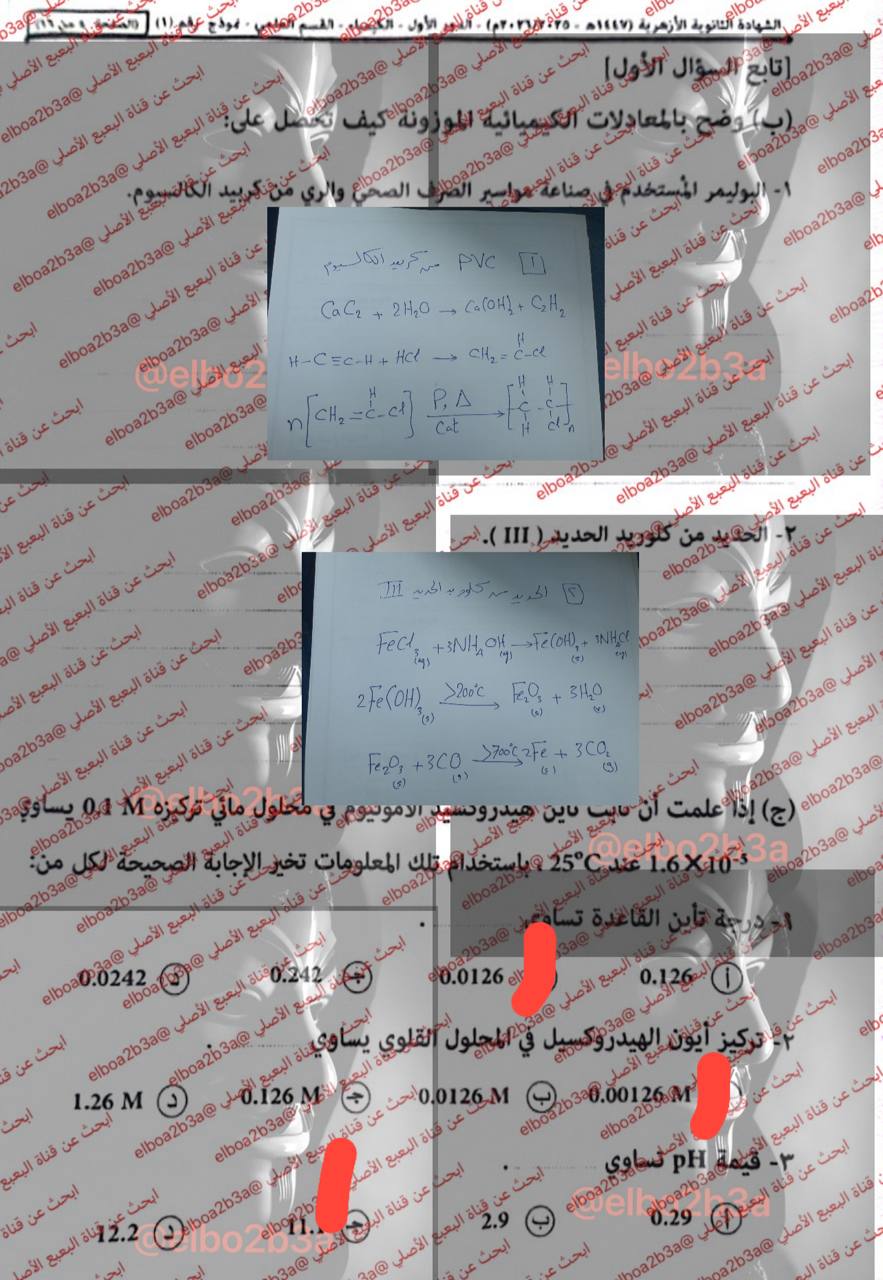 الشهادة الثانوية الأزهرية (١٤٤٧هـ - ٢٠٢٥/٢٠٢٦م) - الدور الأول - الكيمياء - القسم العلمي - نموذج رقم (١)
[تابع السؤال الأول]
(ب) وضح بالمعادلات الكيميائية الموزونة كيف تحصل على:
١- البوليمر المستخدم في صناعة مواسير الصرف الصحي والري من كربيد الكالسيوم.
[١] PVC من كربيد الكالسيوم
CaC₂ + 2H₂O → Ca(OH)₂ + C₂H₂
H-C≡C-H + HCl → CH₂=C(H)-Cl
n[CH₂=C(H)-Cl] P, Δ / Cat → [C(H)(H)-C(H)(Cl)]n
٢- الحديد من كلوريد الحديد (III).
[٢] الحديد من كلوريد الحديد III
FeCl₃(aq) + 3NH₄OH(aq) → Fe(OH)₃(s) + 3NH₄Cl(aq)
2Fe(OH)₃(s) >200°C → Fe₂O₃(s) + 3H₂O(v)
Fe₂O₃(s) + 3CO(g) >700°C → 2Fe(s) + 3CO₂(g)
(ج) إذا علمت أن ثابت تأين هيدروكسيد الأمونيوم في محلول مائي تركيزه 0.1 M يساوي
1.6×10⁻⁵ عند 25°C ، باستخدام تلك المعلومات تخير الإجابة الصحيحة لكل من:
١- درجة تأين القاعدة تساوي .
أ 0.126 0.0126 جـ 0.242 د 0.0242
٢- تركيز أيون الهيدروكسيل في المحلول القلوي يساوي .
0.00126 M ب 0.0126 M جـ 0.126 M د 1.26 M
٣- قيمة pH تساوي .
أ 0.29 ب 2.9 جـ 11. د 12.2
ابحث عن قناة البعبع الأصلي @elboa2b3a
@elbo2b3a